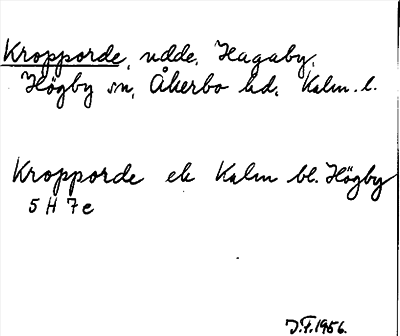 Kropporde, udde, Hagaby,
Högby sn, Åkerbo hd, Kalm. l.
Kropporde ek Kalm bl. Högby
5 H 7 e
J.F. 1956.